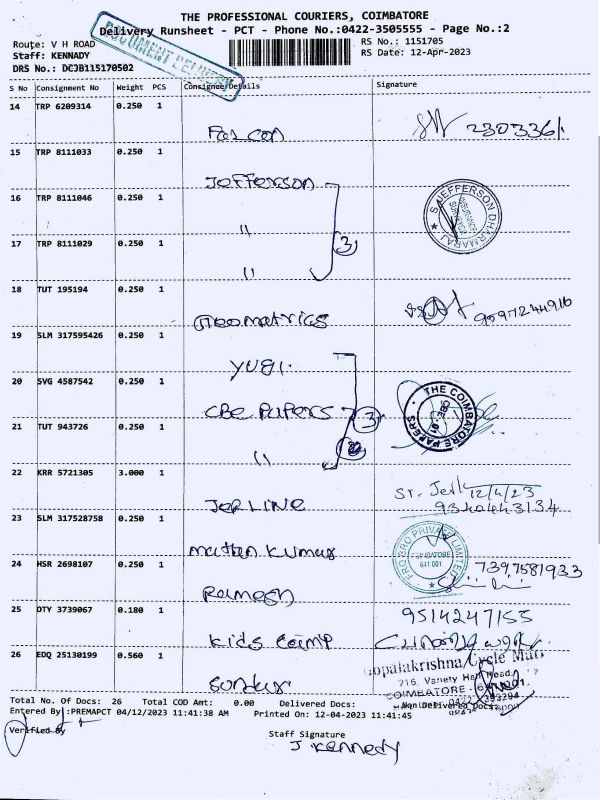 THE PROFESSIONAL COURIERS, COIMBATORE
Delivery Runsheet - PCT - Phone No.:0422-3505555 - Page No.:2
Route: V H ROAD
RS No.: 1151705
Staff: KENNADY
RS Date: 12-Apr-2023
DRS No.: DCJB115170502
DOCUMENT DELIVERY
S No Consignment No Weight PCS Consignee Details Signature
14 TRP 6209314 0.250 1
Falcon 2303361
15 TRP 8111033 0.250 1
Jefferson
16 TRP 8111046 0.250 1
"
S. JEFFERSON DHARMARAJ
INSURANCE SURVEYOR
17 TRP 8111029 0.250 1
3
"
18 TUT 195194 0.250 1
Geomatrics 9597244910
19 SLM 317595426 0.250 1
YUGI.
20 SVG 4587542 0.250 1
CBE Papers 3
THE COIMBATORE PAPERS
CBE-01
21 TUT 943726 0.250 1
"
22 KRR 5721305 3.000 1
JER LINE
12/4/23
9340443134
23 SLM 317528758 0.250 1
Mathan Kumar
PRIVATE LIMITED
COIMBATORE
641 001
24 HSR 2698107 0.250 1
7397581933
Ramesh
25 OTY 3739067 0.180 1
9514247155
Kids Camp
26 EDQ 25130199 0.560 1
Gopalakrishna Cycle Mart
716, Variety Hall Road,
COIMBATORE - 641 001.
Sundar
Total No. Of Docs: 26 Total COD Amt: 0.00 Delivered Docs: Non Delivered Docs:
Entered By :PREMAPCT 04/12/2023 11:41:38 AM Printed On: 12-04-2023 11:41:45
Verified By
Staff Signature
J Kennedy